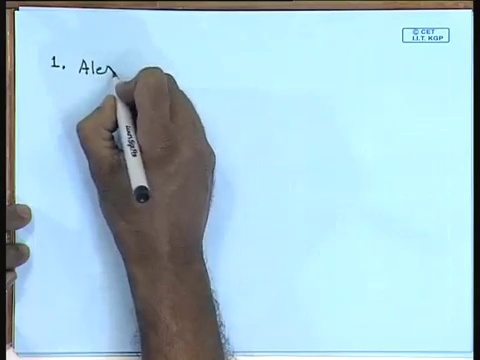 © CET
I.I.T. KGP
1. Ale